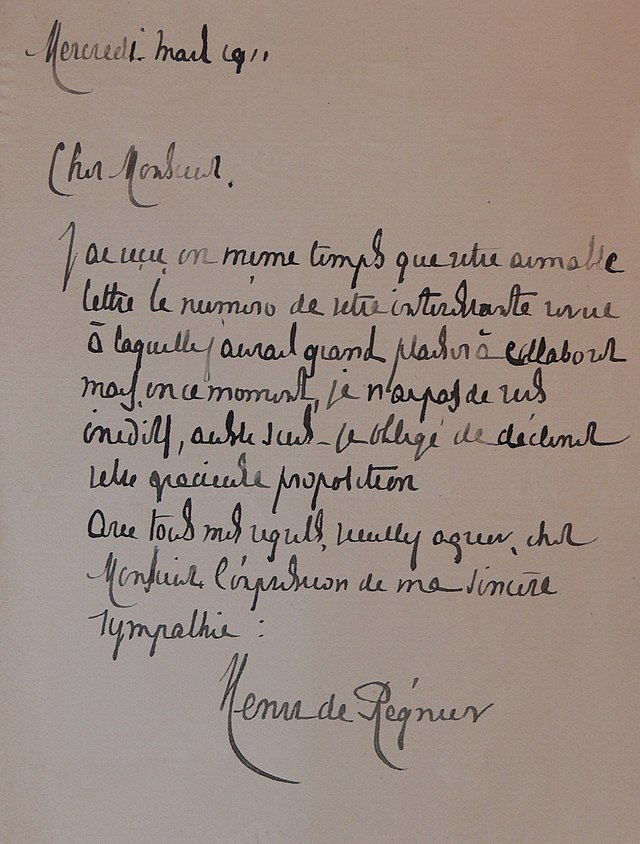 Mercredi. mars 1911
Cher Monsieur.
J'ai reçu en même temps que votre aimable
lettre le numéro de votre intéressante revue
à laquelle j'aurais grand plaisir à collaborer
mais, en ce moment, je n'ai pas de vers
inédits, aussi suis-je obligé de décliner
votre gracieuse proposition
Avec tous mes regrets, veuillez agréer, cher
Monsieur, l'expression de ma sincère
sympathie :
Henri de Régnier